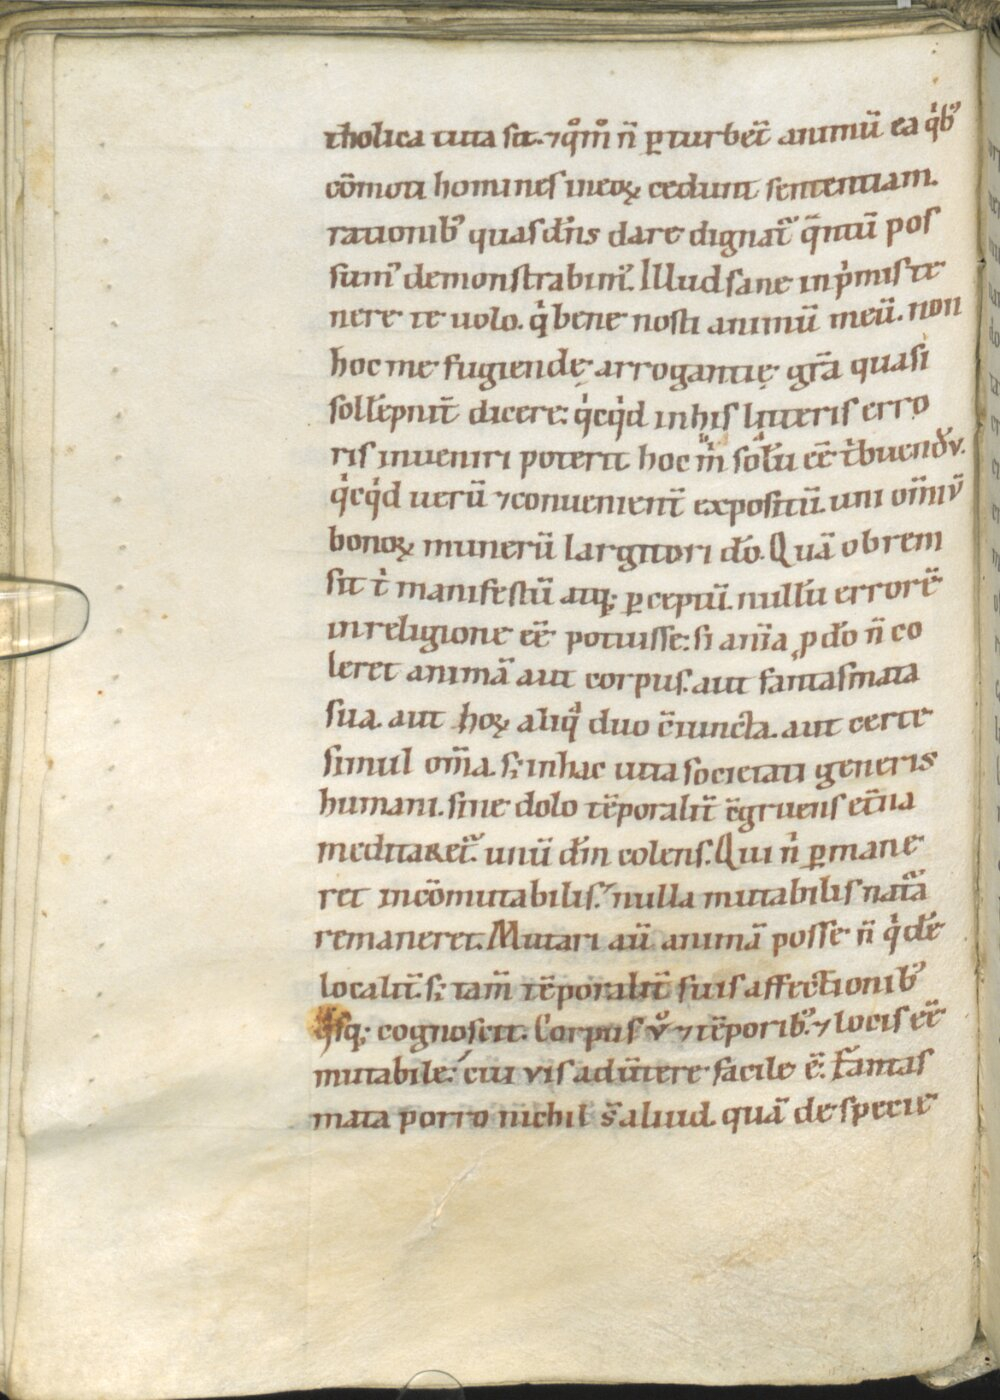 tholica tuta sit. ⁊ qͦmͦ n̄ ꝑturbet̄ animū ea qͥbꝰ
cōmoti homines in eoꝝ cedunt sententiam.
rationibꝰ quas dn̄s dare dignat᷑ qͣntū pos
sumꝰ demonstrabimꝰ. Illud sane in pͥmis te
nere te uolo. qͥ bene nosti animū meū. non
hoc me fugiendę arrogantię gr̄a quasi
sollēpnit̄ dicere: qͥcqͥd in his litteris erro
ris inueniri poterit hoc m̄ solū eē tͥbuendū.
qͥcqͥd uerū ⁊ conuenient̄ expositū. uni om̄iū
bonoꝝ munerū largitori dō. Quā obrem
sit tͥ manifestū atq; ꝑceptū. nullū errorē
in religione eē potuisse: si anīa ꝓ dō n̄ co
leret animā aut corpus. aut fantasmata
sua. aut hoꝝ aliqͣ duo c̄iuncta. aut certe
simul om̄a. s; in hac uita societati generis
humani. sine dolo tēporalit̄ c̄gruens et̄na
meditaret᷑. unū dm̄ colens. Qui nͥ ꝑmane
ret incōmutabilis: nulla mutabilis nat᷑a
remaneret. Mutari aū animā posse n̄ qͥdē
localit̄. s; tam̄ tēporalit̄ suis affectionibꝰ
qͥsq; cognoscit. Corpus ūͦ ⁊ tēporibꝰ. ⁊ locis eē
mutabile: cui vis aduͥtere facile ē. Fantas
mata porro nichil s̄ aliud. quā de specie